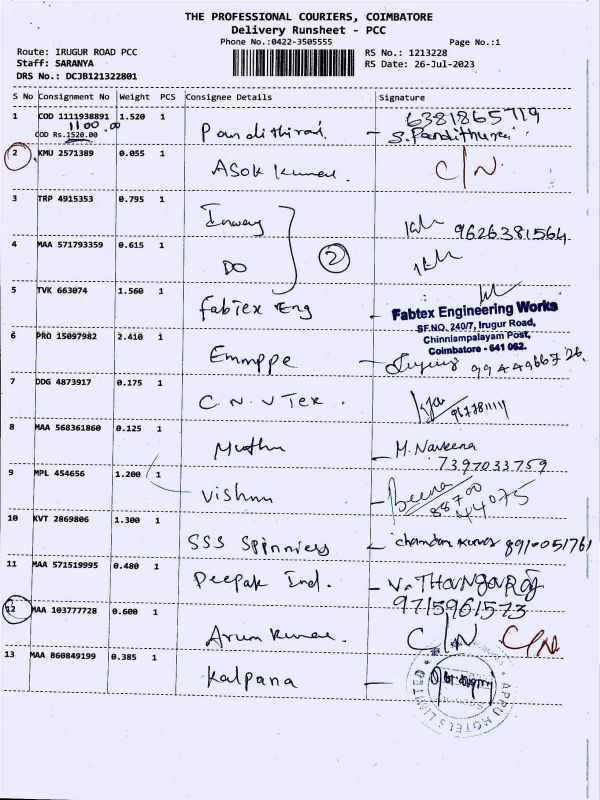 THE PROFESSIONAL COURIERS, COIMBATORE
Delivery Runsheet - PCC
Phone No.:0422-3505555 Page No.:1
Route: IRUGUR ROAD PCC RS No.: 1213228
Staff: SARANYA RS Date: 26-Jul-2023
DRS No.: DCJB121322801
S No Consignment No Weight PCS Consignee Details Signature
1 COD 1111938891 1.520 1 6381865719
1100.00
COD Rs.1520.00 Pandithurai - S. Pandithurai
2 KMU 2571389 0.055 1 Asok Kumar C/N
3 TRP 4915353 0.795 1 9626381564
4 MAA 571793359 0.615 1 DO 2
5 TVK 663074 1.560 1 Fabtex Eng
Fabtex Engineering Works
SF.NO. 240/7, Irugur Road,
Chinniampalayam Post,
Coimbatore - 641 062.
6 PRO 15097982 2.410 1 Emmppe - 9944966726
7 DDG 4873917 0.175 1 C.N.V Tex.
8 MAA 568361860 0.125 1 Muthu - M. Naveena
7397033759
9 MPL 454656 1.200 1 Vishnu - Beena
88700
44075
10 KVT 2869806 1.300 1 SSS Spinners - Chandan Kumar 891-051761
11 MAA 571519995 0.480 1 Deepak Ind. - V. THANGARAJ
9715961573
12 MAA 103777728 0.600 1 Arun Kumar. C/N C/N
13 MAA 860849199 0.385 1 Kalpana -
APPU HOTELS LIMITED